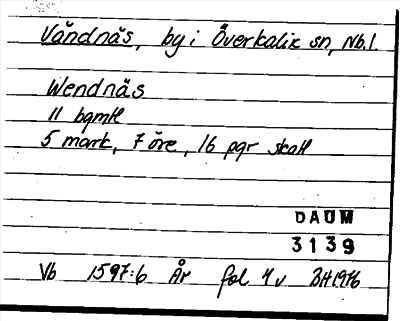 Vändnäs, by i Överkalix sn, Nb.l.
Wendnäs
11 bgmtl
5 mark, 7 öre, 16 pgr skatt
DAUM
3139
Vb 1597:6 År fol 4v BH1976